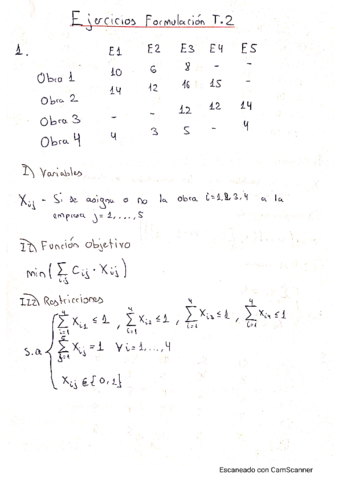 Ejercicios Formulación T.2
1.
E1 E2 E3 E4 E5
Obra 1 10 6 8 - -
Obra 2 14 12 16 15 -
Obra 3 - - 12 12 14
Obra 4 4 3 5 - 4
I) Variables
Xij - Si se asigna o no la obra i=1,2,3,4 a la
empresa j=1,...,5
II) Función objetivo
min(∑i,j Cij · Xij)
III) Restricciones
s.a { ∑i=1^4 Xi1 ≤ 1 , ∑i=1^4 Xi2 ≤ 1 , ∑i=1^4 Xi3 ≤ 1 , ∑i=1^4 Xi4 ≤ 1
∑j=1^5 Xij = 1 ∀ i=1,...,4
Xij ∈ {0,1}
Escaneado con CamScanner